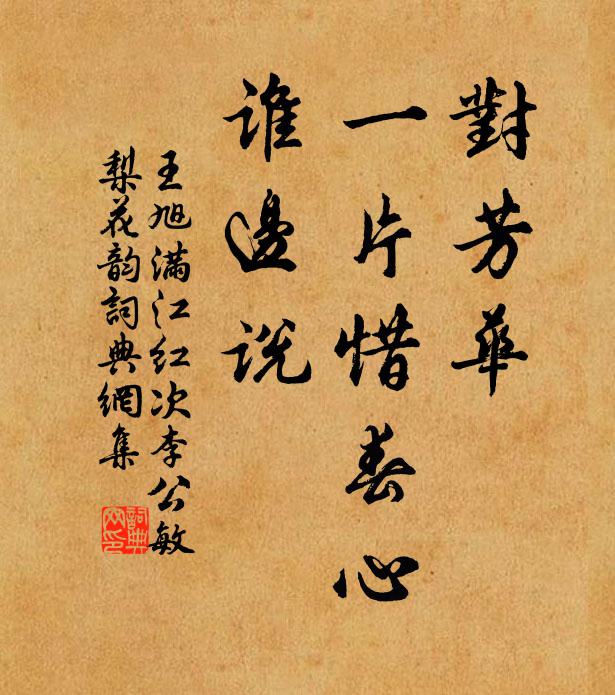 對芳華
一片惜春心
誰邊説
王旭满江红次李公敏
梨花韵詞典網集
詞典网印